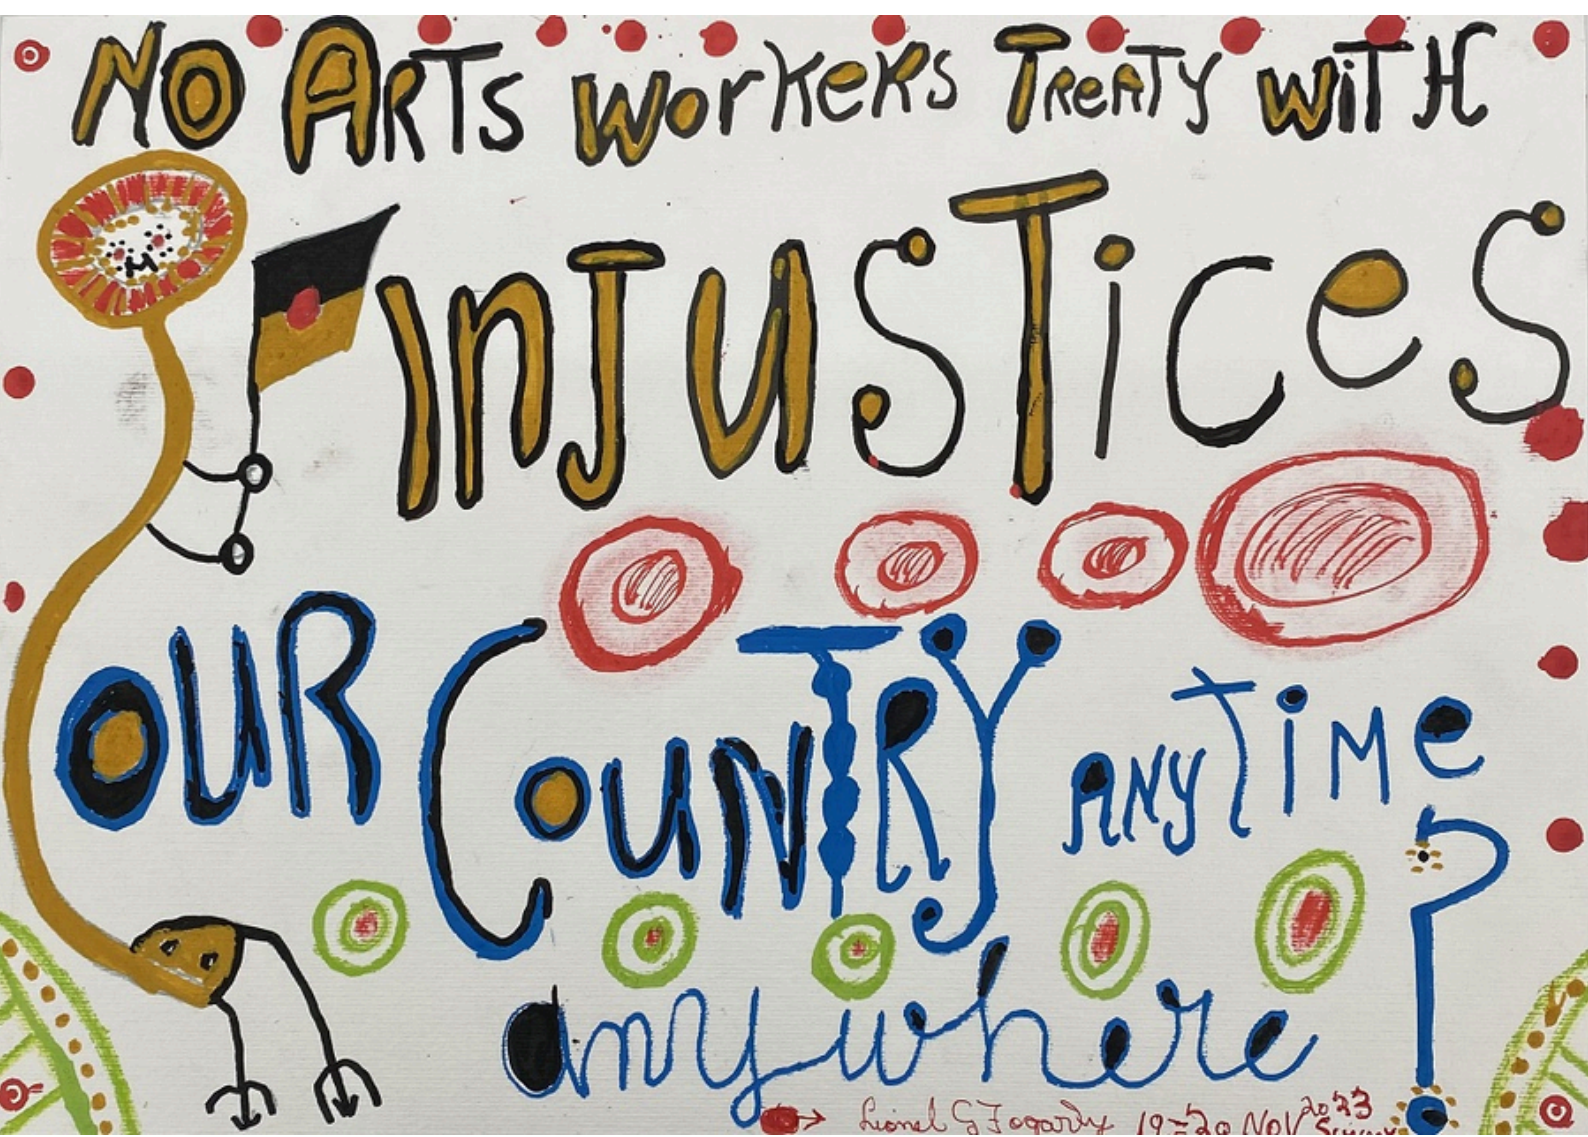 NO ARTS WORKERS TREATY WITH
INJUSTICES
OUR COUNTRY ANYTIME ?
anywhere
Lionel G Fogarty 19=20 NOV 2023